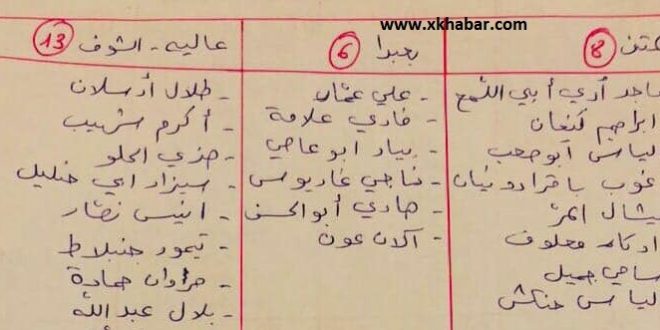 www.xkhabar.com
عاليه - الشوف 13
- طلال أرسلان
- أكرم شهيب
- الحلو
- سيزار ابي خليل
- انيس نصّار
- تيمور جنبلاط
- مروان حمادة
- بلال عبد الله
بعبدا 6
- علي عمّار
- فادي علامة
- بيار ابو عاصي
- ناجي غاريوس
- هادي أبو الحسن
- آلان عون
8
أدي أبي اللمع
ابراهيم كنعان
الياس ابو صعب
باقرادونيان
المرّ
معلوف
الياس حنكش